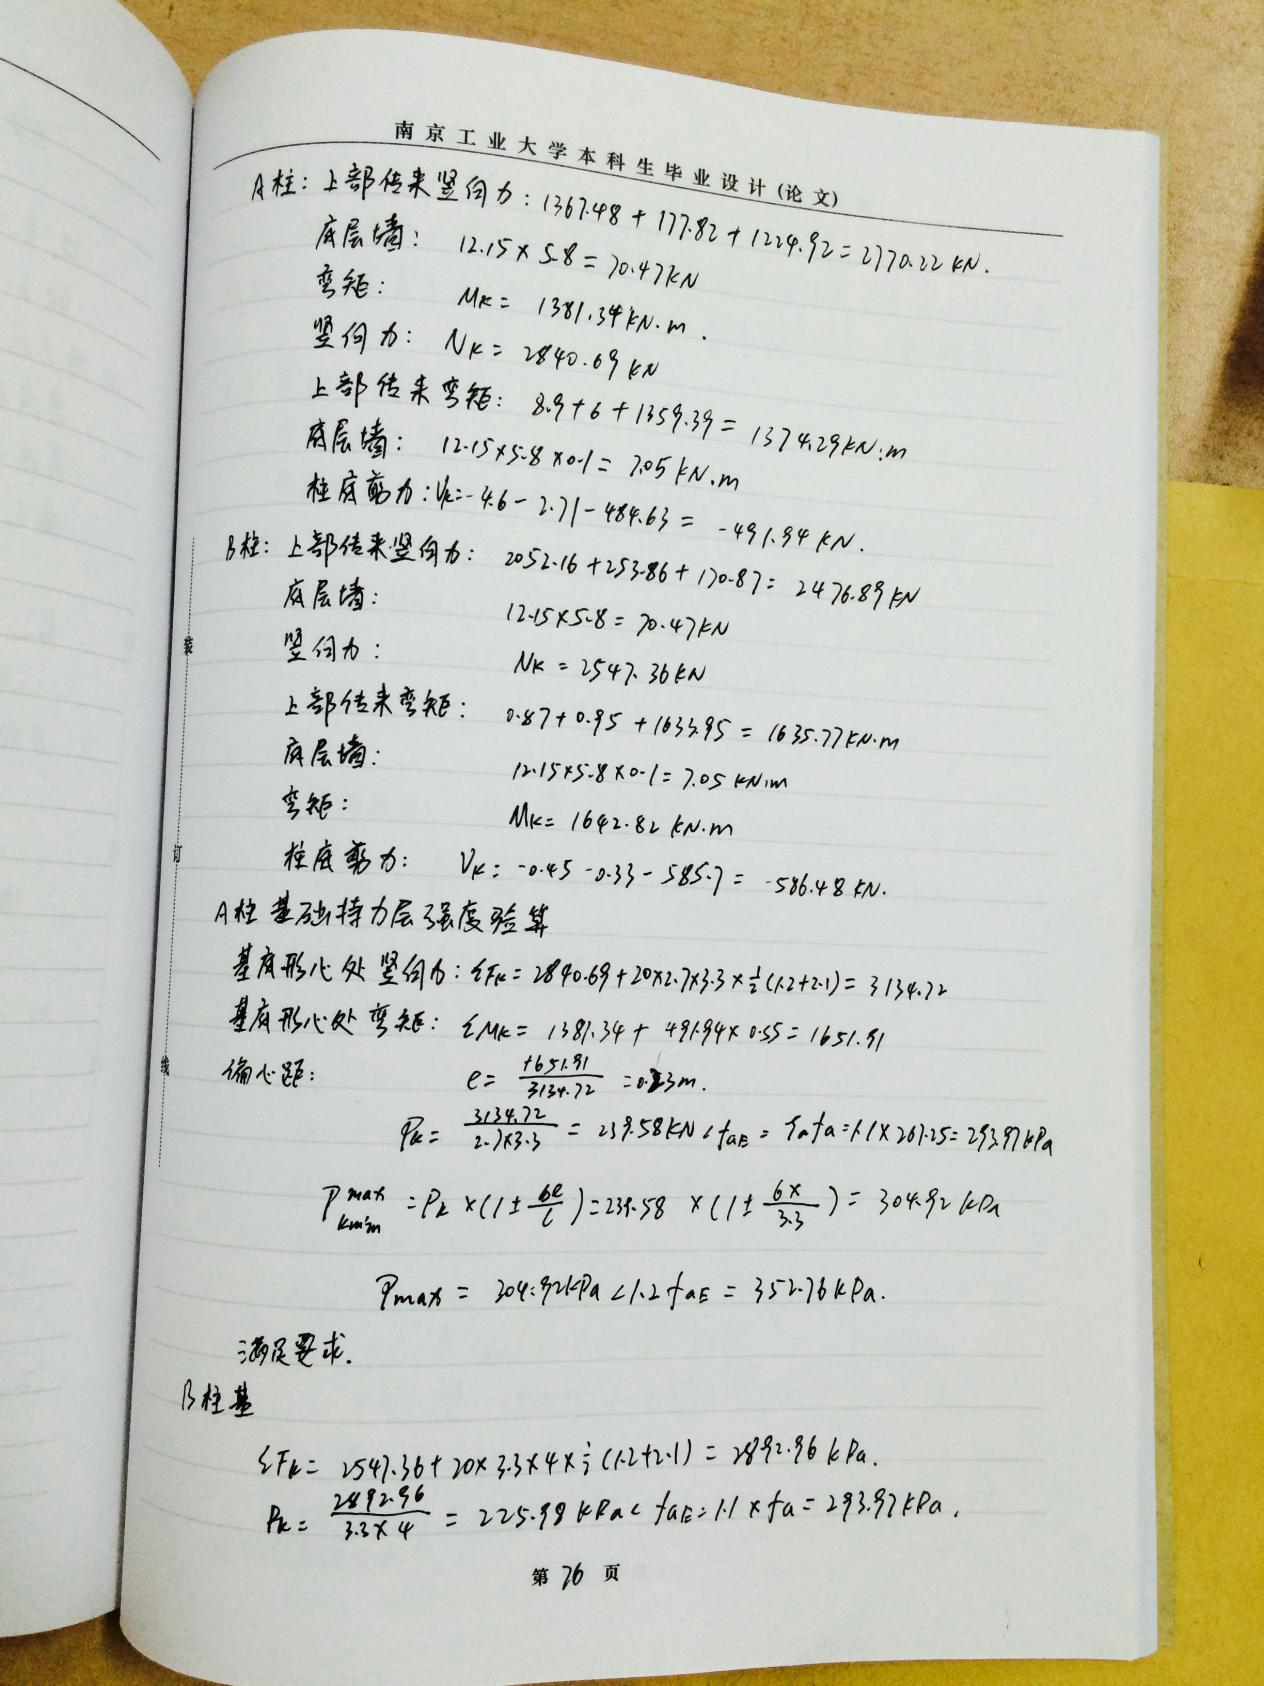 南京工业大学本科生毕业设计(论文)
A柱: 上部传来竖向力: 1367.48 + 177.82 + 1224.92 = 2770.22 KN.
底层墙: 12.15 × 5.8 = 70.47KN
弯矩: Mk = 1381.34 KN·m.
竖向力: Nk = 2840.69 KN
上部传来弯矩: 8.9+6+1359.39 = 1374.29KN·m
底层墙: 12.15×5.8×0.1 = 7.05 KN·m
柱底剪力: Vk=-4.6-2.71-484.63 = -491.94 KN.
B柱: 上部传来竖向力: 2052.16+253.86+170.87= 2476.89 KN
底层墙: 12.15×5.8 = 70.47KN
竖向力: Nk = 2547.36KN
上部传来弯矩: 0.87+0.95+1633.95 = 1635.77KN·m
底层墙: 12.15×5.8×0.1=7.05 KN·m
弯矩: Mk= 1642.82 KN·m
柱底剪力: Vk= -0.45 -0.33-585.7 = -586.48 KN.
A柱基础持力层强度验算
基底形心处竖向力: ΣFk= 2840.69+20×2.7×3.3×½(1.2+2.1)= 3134.72
基底形心处弯矩: ΣMk= 1381.34+ 491.94×0.55= 1651.91
偏心距: e= 1651.91/3134.72 = m.
Pk= 3134.72/2.7×3.3 = 239.58KN < faE = ζafa=1.1×267.25=293.97kPa
P kmax kmin = Pk ×(1± 6e/l)=239.58 ×(1± 6×/3.3)= 304.92 kPa
Pmax = 304.92kPa<1.2faE = 352.76kPa.
满足要求.
B柱基
ΣFk= 2547.36+20×3.3×4×½(1.2+2.1)= 2892.96 kPa.
Pk= 2892.96/3.3×4 = 225.98 kPa< faE=1.1×fa= 293.97kPa.
第 76 页
装
订
线